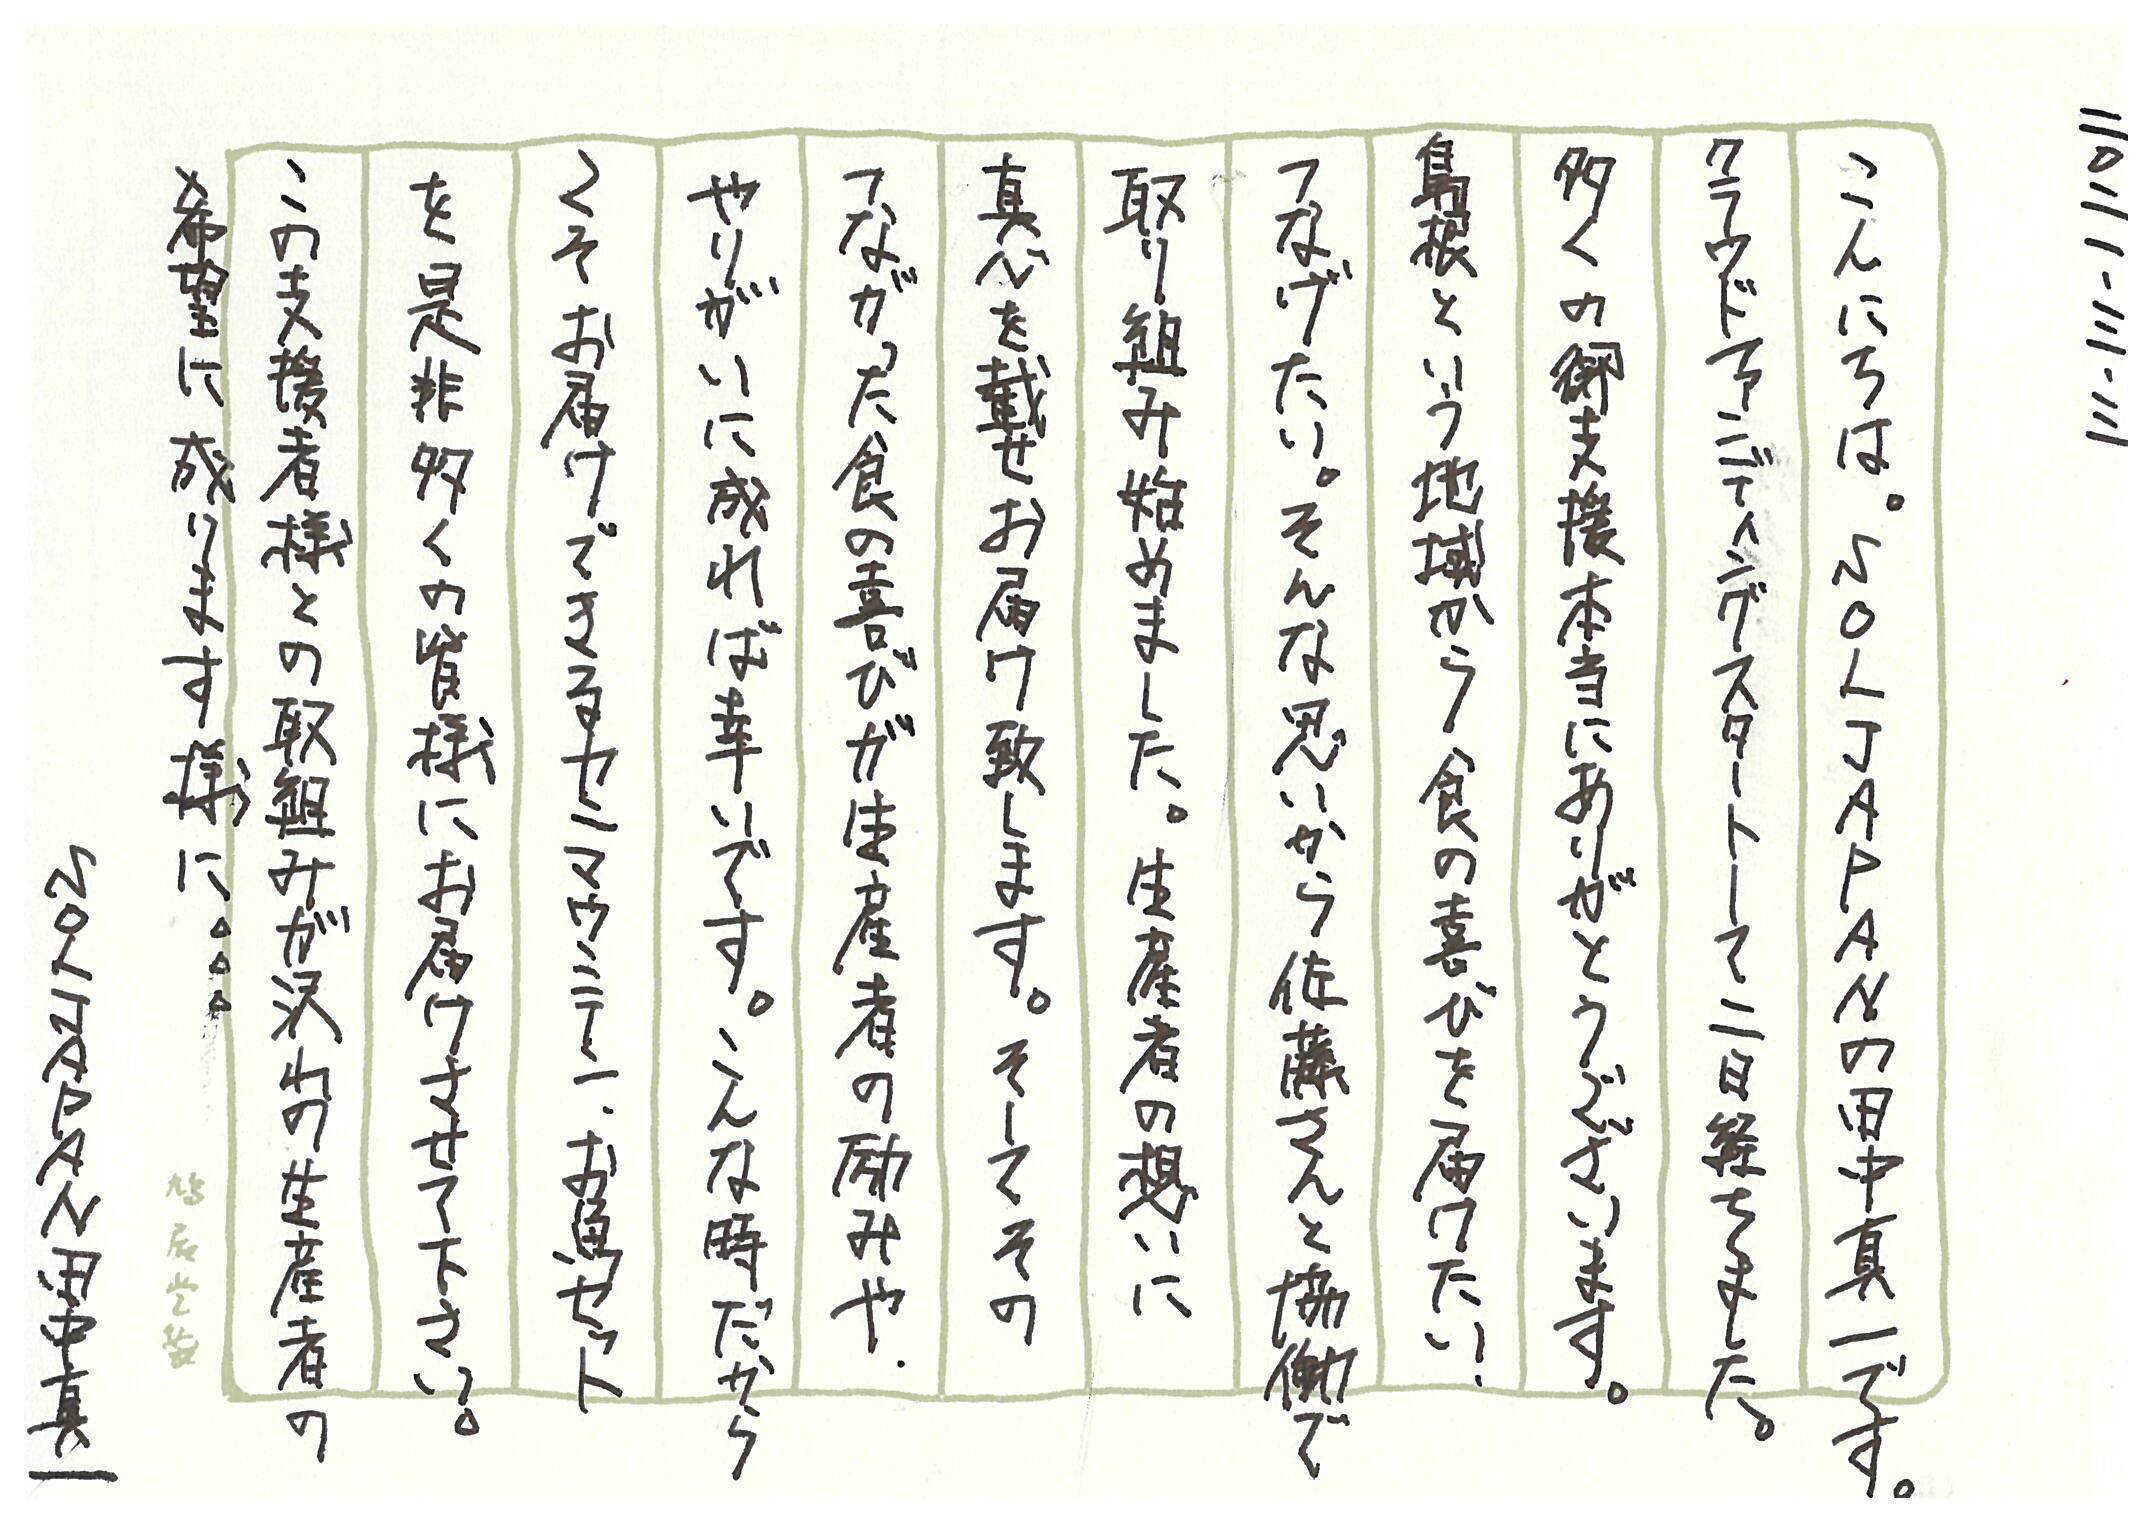 二〇二一・三・三
こんにちは。SOLJAPANの田中真一です。
クラウドファンディングスタートして二日経ちました。
多くの御支援本当にありがとうございます。
島根という地域から食の喜びを届けたい、
つなげたい。そんな思いから佐藤さんと協働で
取り組み始めました。生産者の想いに
真心を載せお届け致します。そしてその
つながった食の喜びが生産者の励みや、
やりがいに成れば幸いです。こんな時だから
こそお届けできるセミマウンテン、お魚セット
を是非多くの皆様にお届けさせて下さい。
この支援者様との取組みが沢れの生産者の
希望に成ります様に。。。
SOLJAPAN田中真一
鳩居堂製